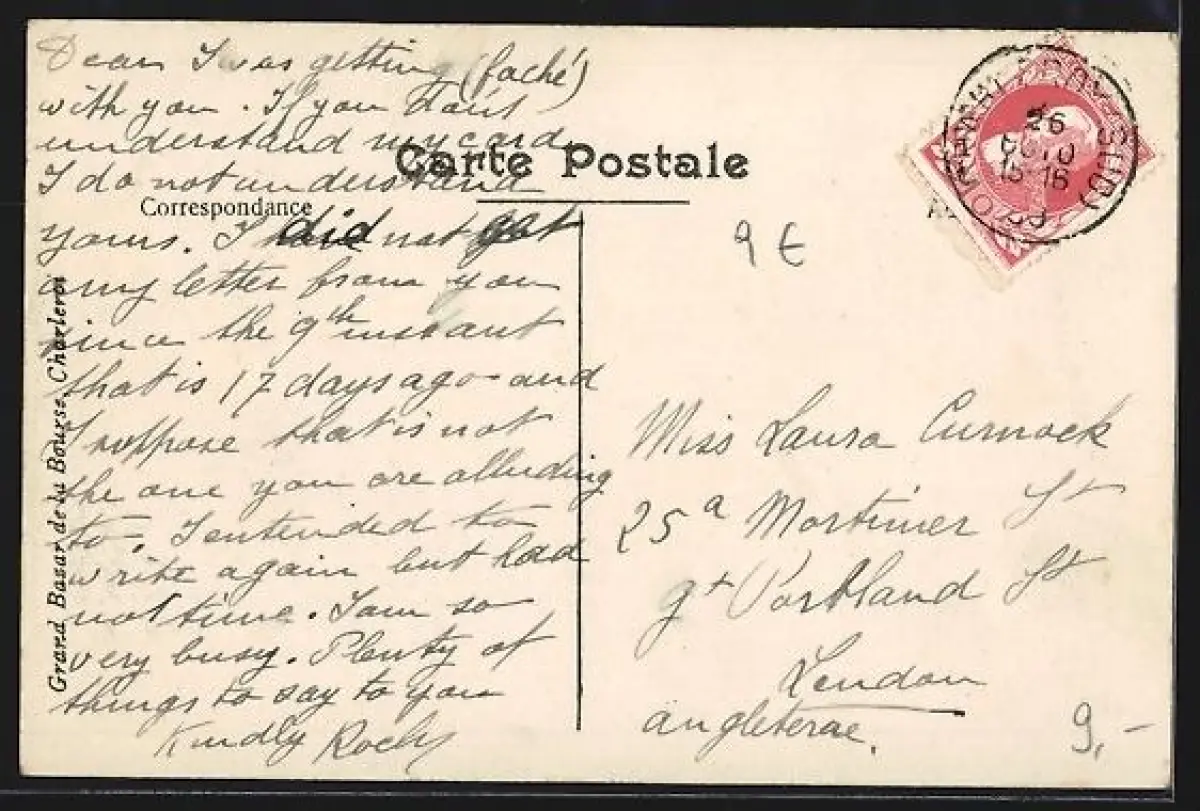 Dear I was getting (faché)
with you. If you don't
understand my card
I do not understand
yours. I did not get
any letter from you
since the 9th instant
that is 17 days ago and
I suppose that is not
the one you are alluding
to, I entended to
write again but had
not time. I am so
very busy. Plenty of
things to say to you
Kindly Roch
Carte Postale
Correspondance
Grard Bazar de la Bourse, Charleroi
26
15-15
(SUD)
9 €
Miss Laura Curnock
25a Mortimer St
gt Portland St
London
angleterae.
9,-